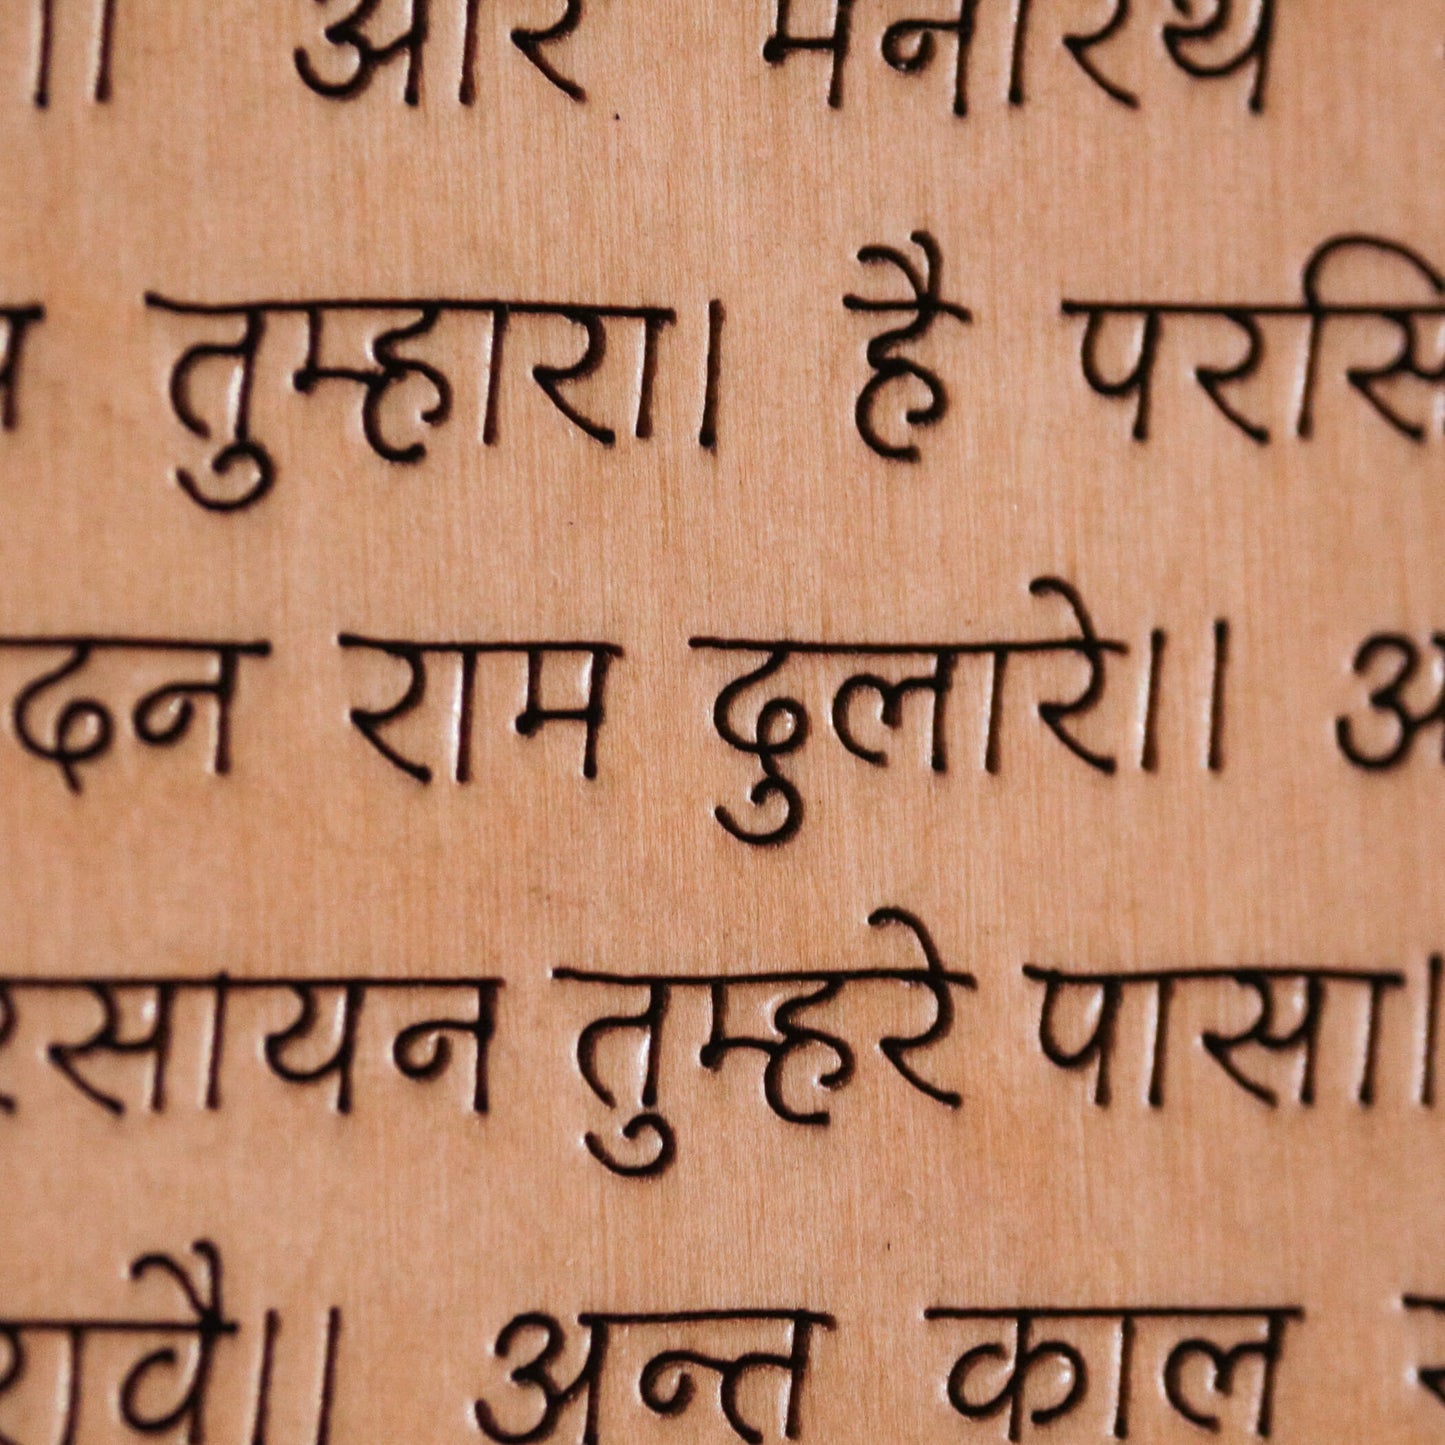 ।। और मनोरथ
तुम्हारा। है परसि
दन राम दुलारे।। अ
रसायन तुम्हरे पासा।
रावै।। अन्त काल